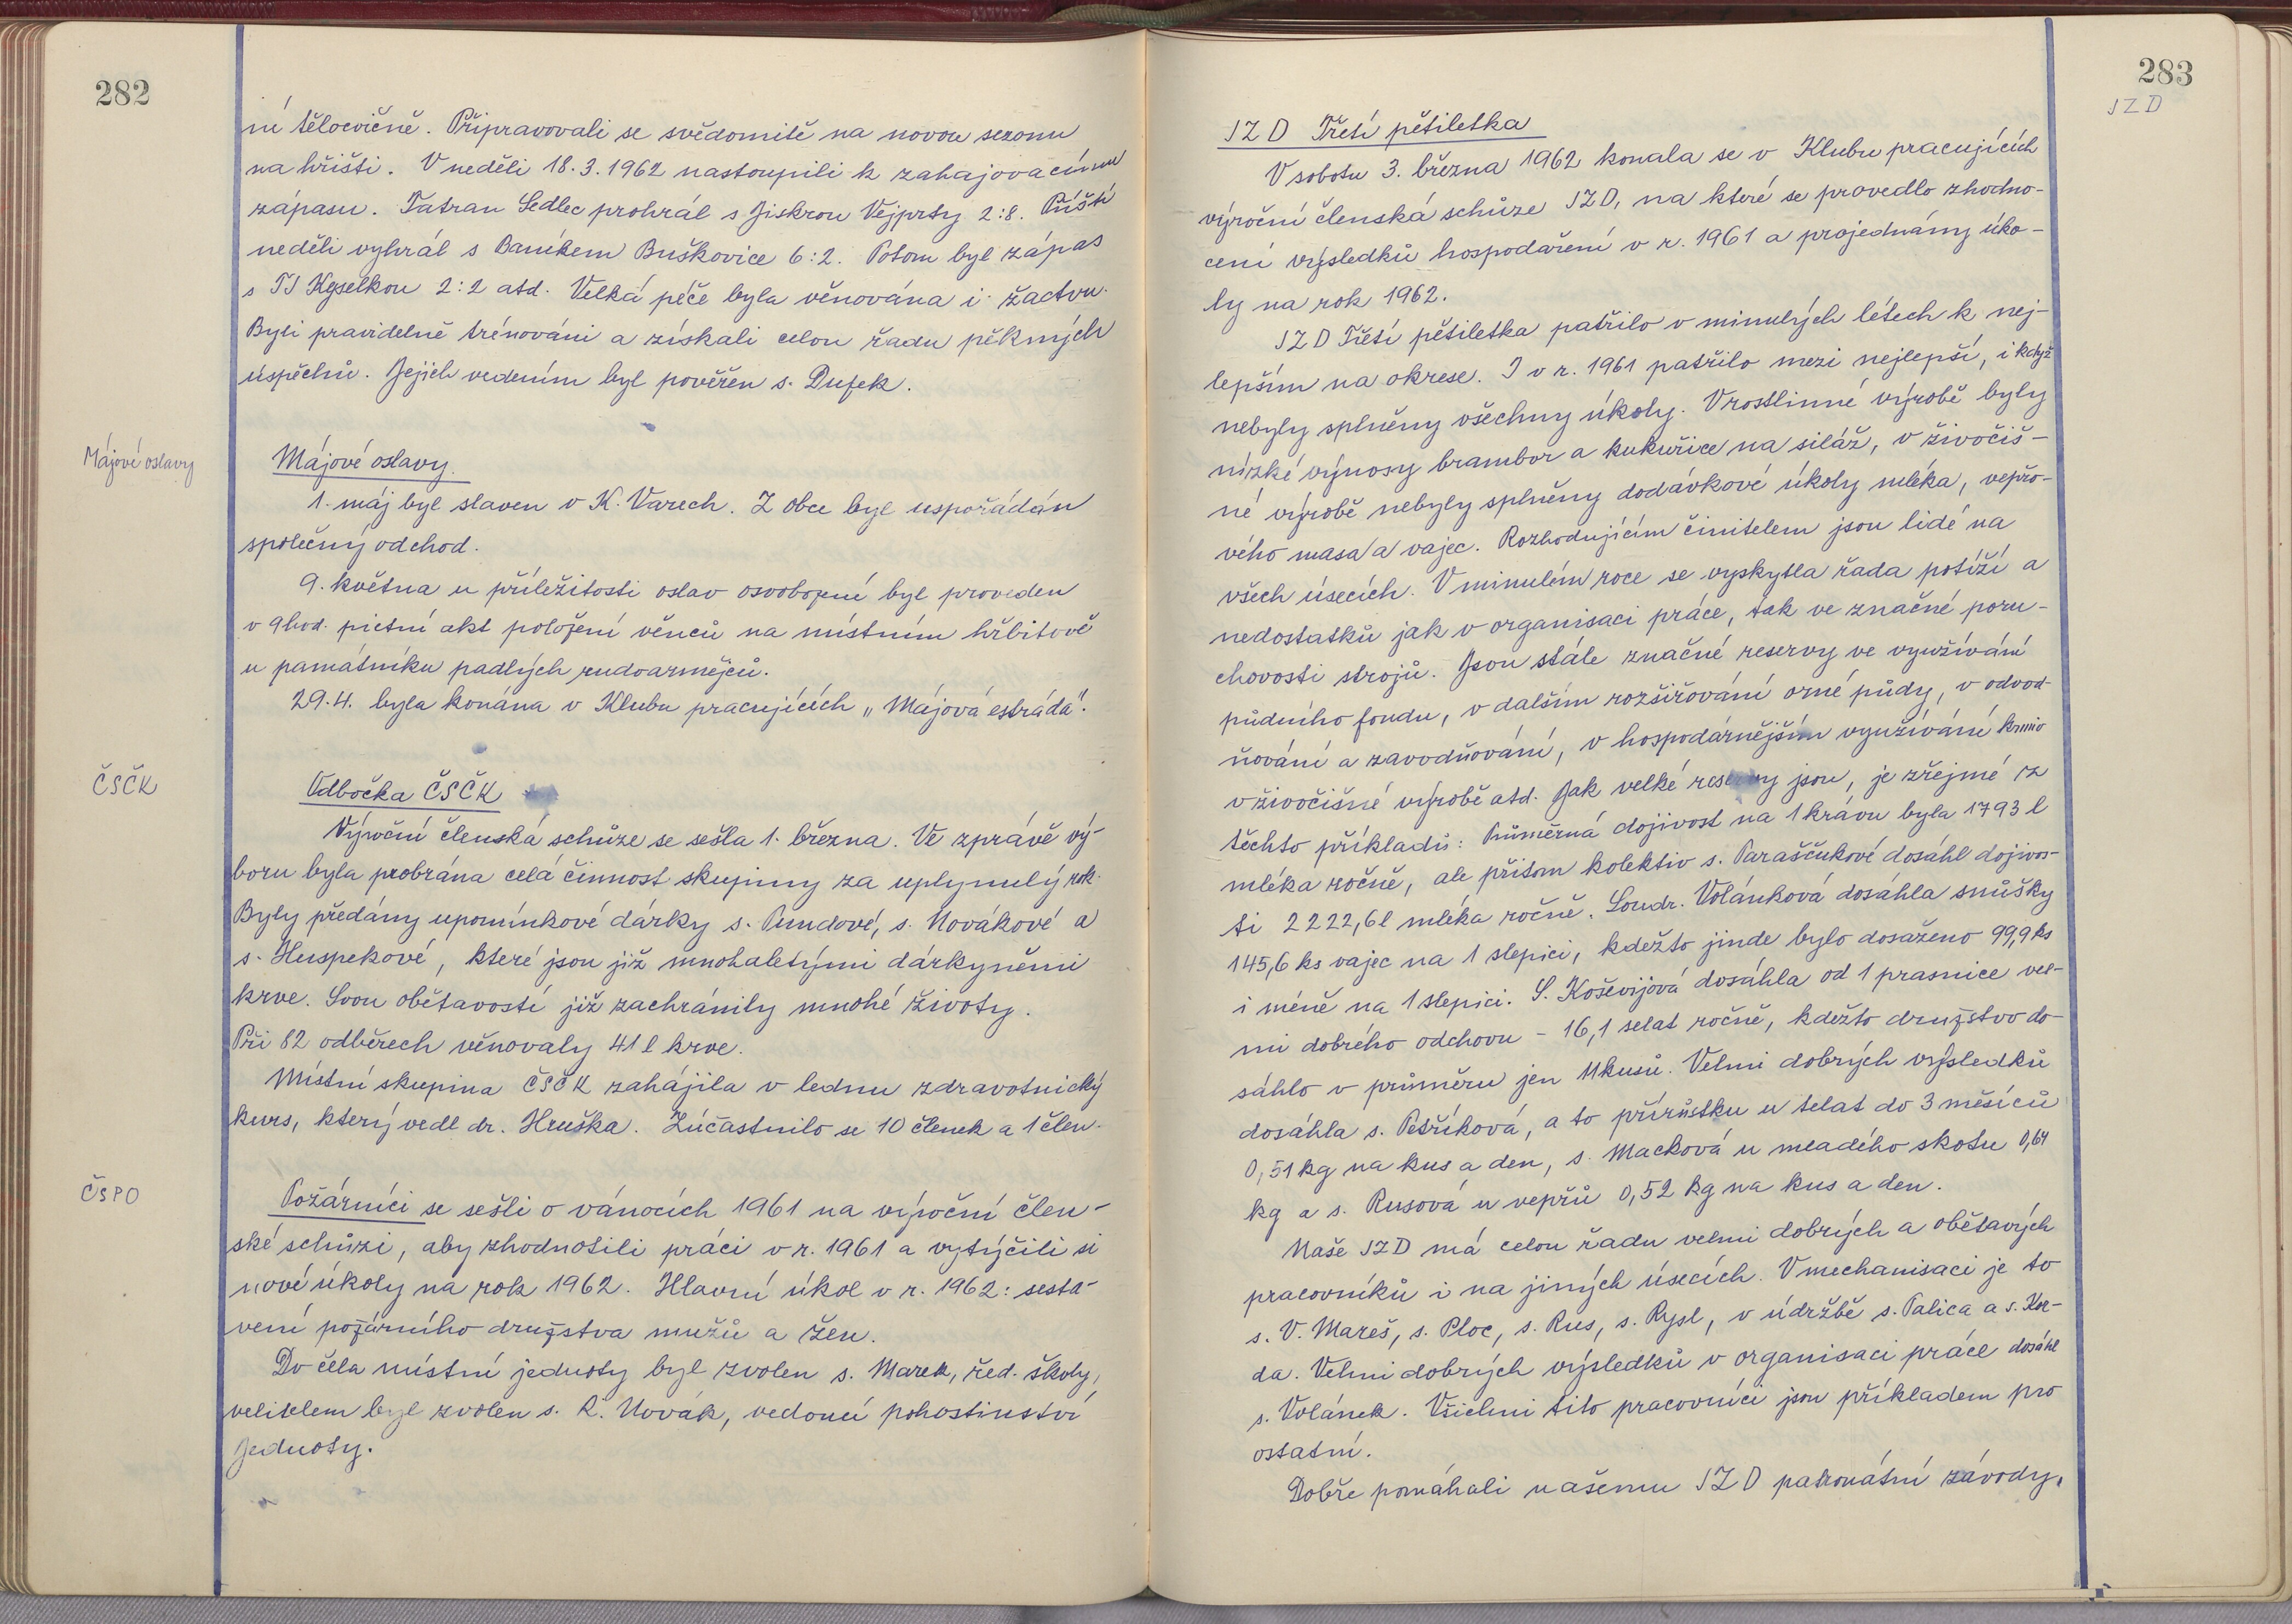 282
ní tělocvičně. Připravovali se svědomitě na novou sezonu
na hřišti. V neděli 18.3.1962 nastoupili k zahajovacímu
zápasu. Tatran Sedlec prohrál s Jiskrou Vejprty 2:8. Příští
neděli vyhrál s Baníkem Buškovice 6:2. Potom byl zápas
s TJ Kyselkou 2:2 atd. Velká péče byla věnována i žactvu.
Byli pravidelně trénováni a získali celou řadu pěkných
úspěchů. Jejich vedením byl pověřen s. Dufek.
Májové oslavy
Májové oslavy.
1. máj byl slaven v K. Varech. Z obce byl uspořádán
společný odchod.
9. května u příležitosti oslav osvobození byl proveden
v 9hod. pietní akt položení věnců na místním hřbitově
u památníku padlých rudoarmějců.
29.4. byla konána v Klubu pracujících „Májová estráda".
ČSČK
Odbočka ČSČK
Výroční členská schůze se sešla 1. března. Ve zprávě vý-
boru byla probrána celá činnost skupiny za uplynulý rok.
Byly předány upomínkové dárky s. Pundové, s. Novákové a
s. Huspekové, které jsou již mnohaletými dárkyněmi
krve. Svou obětavostí již zachránily mnohé životy.
Při 82 odběrech věnovaly 41 l krve.
Místní skupina ČSČK zahájila v lednu zdravotnický
kurs, který vedl dr. Hruška. Zúčastnilo se 10 členek a 1 člen.
ČSPO
Požárníci se sešli o vánocích 1961 na výroční člen-
ské schůzi, aby zhodnotili práci v r. 1961 a vytýčili si
nové úkoly na rok 1962. Hlavní úkol v r. 1962: sesta-
vení požárního družstva mužů a žen.
Do čela místní jednoty byl zvolen s. Marek, řed. školy,
velitelem byl zvolen s. R. Novák, vedoucí pohostinství
Jednoty.
283
JZD
JZD Třetí pětiletka
V sobotu 3. března 1962 konala se v Klubu pracujících
výroční členská schůze JZD, na které se provedlo zhodno-
cení výsledků hospodaření v r. 1961 a projednány úko-
ly na rok 1962.
JZD Třetí pětiletka patřilo v minulých létech k nej-
lepším na okrese. I v r. 1961 patřilo mezi nejlepší, i když
nebyly splněny všechny úkoly. V rostlinné výrobě byly
nízké výnosy brambor a kukuřice na siláž, v živočiš-
né výrobě nebyly splněny dodávkové úkoly mléka, vepřo-
vého masa a vajec. Rozhodujícím činitelem jsou lidé na
všech úsecích. V minulém roce se vyskytla řada potíží a
nedostatků jak v organisaci práce, tak ve značné poru-
chovosti strojů. Jsou stále značné reservy ve využívání
půdního fondu, v dalším rozšiřování orné půdy, v odvod-
ňování a zavodňování, v hospodárnějším využívání krmiv
v živočišné výrobě atd. Jak velké reservy jsou, je zřejmé z
těchto příkladů: Průměrná dojivost na 1 krávu byla 1793 l
mléka ročně, ale přitom kolektiv s. Paraščukové dosáhl dojivos-
ti 2222,6 l mléka ročně. Soudr. Volánková dosáhla snůšky
145,6 ks vajec na 1 slepici, kdežto jinde bylo dosaženo 99,9 ks
i méně na 1 slepici. S. Koševijová dosáhla od 1 prasnice vel-
mi dobrého odchovu - 16,1 selat ročně, kdežto družstvo do-
sáhlo v průměru jen 11 kusů. Velmi dobrých výsledků
dosáhla s. Petříková, a to přírůstku u telat do 3 měsíců
0,51 kg na kus a den, s. Macková u mladého skotu 0,64
kg a s. Rusová u vepřů 0,52 kg na kus a den.
Naše JZD má celou řadu velmi dobrých a obětavých
pracovníků i na jiných úsecích. V mechanisaci je to
s. V. Mareš, s. Ploc, s. Rus, s. Rysl, v údržbě s. Palica a s. Kor-
da. Velmi dobrých výsledků v organisaci práce dosáhl
s. Volánek. Všichni tito pracovníci jsou příkladem pro
ostatní.
Dobře pomáhali našemu JZD patronátní závody,